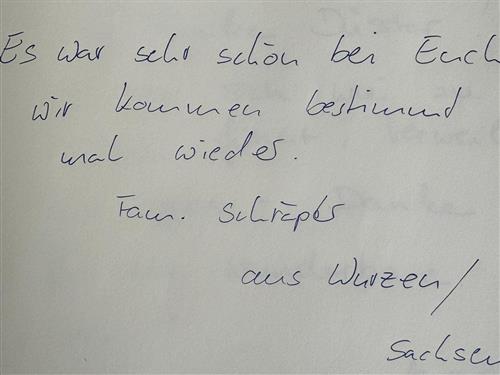 Es war sehr schön bei Euch
wir kommen bestimmt
mal wieder.
Fam.
aus Wurzen/
Sachsen